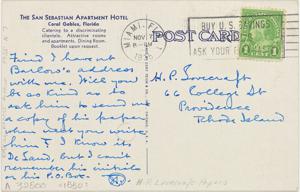 THE SAN SEBASTIAN APARTMENT HOTEL
Coral Gables, Florida
Catering to a discriminating
clientele. Attractive rooms
and apartments. Dining Room.
Booklet upon request.
MIAMI, FLA.
NOV
POST CARD
BUY U.S. SAVINGS
ASK YOUR
1
Find I haven't
Barlow's address
with me. Will you
be so kind as to
ask him to send
me a copy of his paper
when next you write
him? I know its
De Land, but I can't
remember his initials
or his P.O. Box.
H. P. Lovecraft
66 College St
Providence
Rhode Island
H. P. Lovecraft Papers